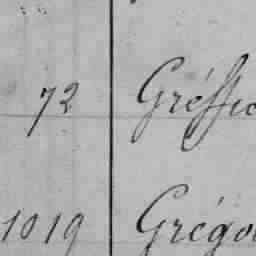 72 Gréffie
1019 Grégo